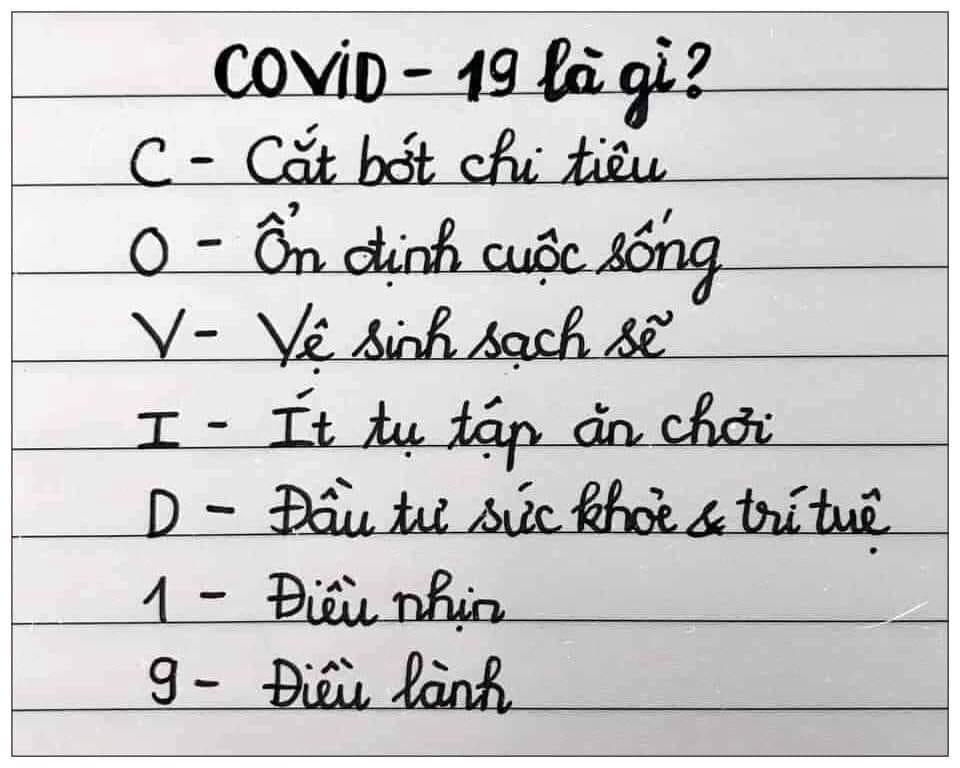 COViD - 19 là gì?
C - Cắt bớt chi tiêu
O - Ổn định cuộc sống
V - Vệ sinh sạch sẽ
I - Ít tụ tập ăn chơi
D - Đầu tư sức khỏe & trí tuệ
1 - Điều nhịn
9 - Điều lành